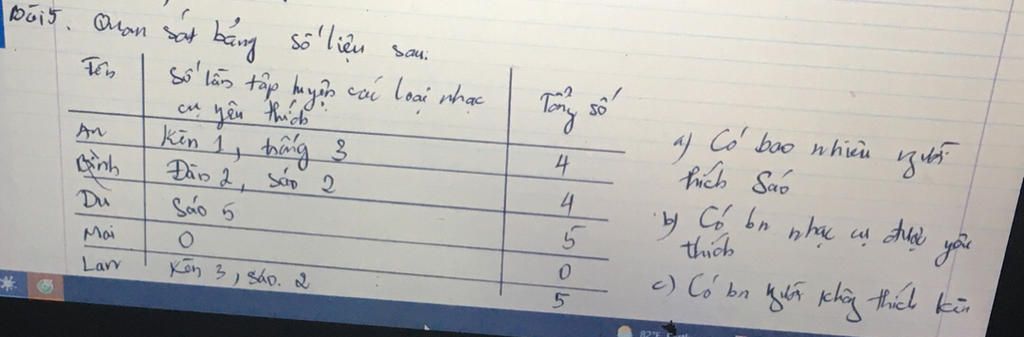 Bài 5. Quan sát bảng số liệu sau:
Tên
Số lần tập luyện các loại nhạc
cụ yêu thích
Tổng số
An
Kèn 1, trống 3
4
Bình
Đàn 2, sáo 2
4
Du
Sáo 5
5
Mai
0
0
Lan
Kèn 3, sáo. 2
5
a) Có bao nhiêu người
thích Sáo
b) Có bn nhạc cụ được yêu
thích
c) Có bn người không thích kèn
82°F